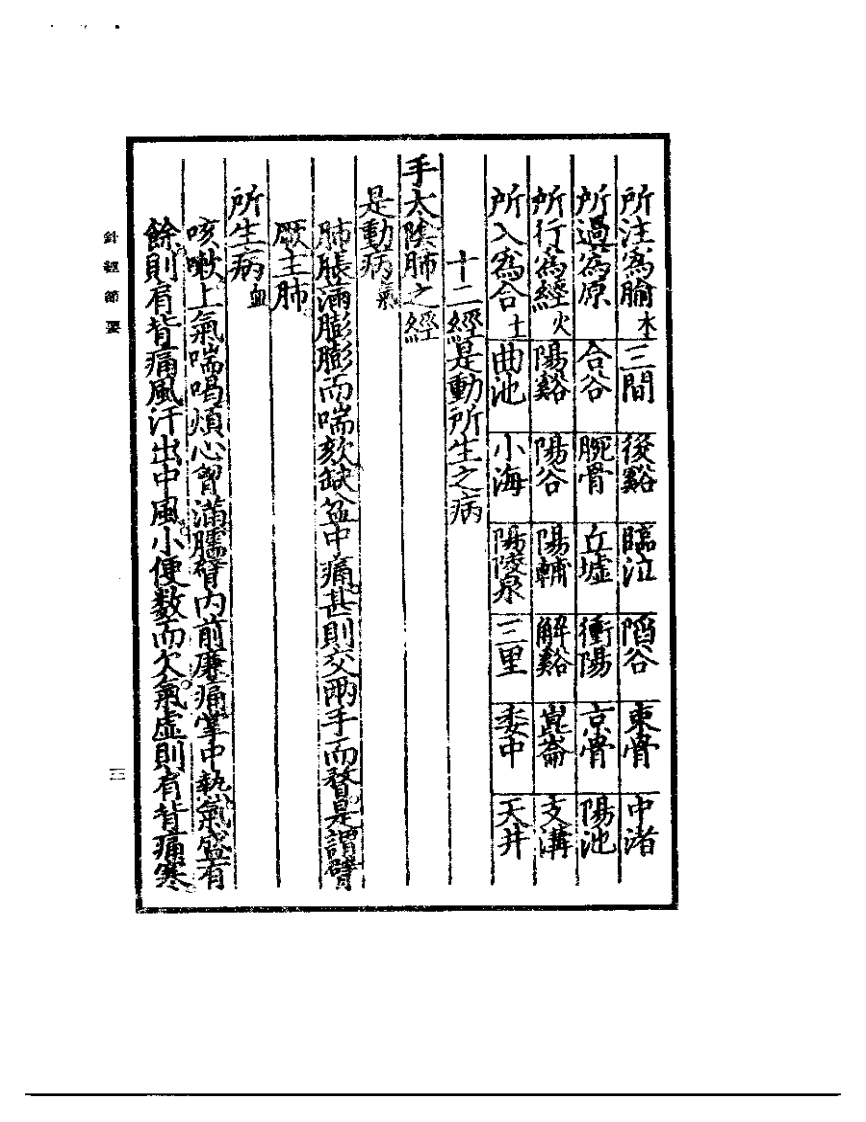 所注為腧木 三間 後谿 臨泣 陷谷 束骨 中渚
所過為原 合谷 腕骨 丘墟 衝陽 京骨 陽池
所行為經火 陽谿 陽谷 陽輔 解谿 崑崙 支溝
所入為合土 曲池 小海 陽陵泉 三里 委中 天井
十二經是動所生之病
手太陰肺之經
是動病氣
肺脹滿膨膨而喘欬缺盆中痛甚則交兩手而瞀是謂臂
厥主肺
所生病血
咳嗽上氣喘喝煩心胷滿臑臂內前廉痛掌中熱氣盛有
餘則肩背痛風汗出中風小便数而欠氣虛則肩背痛寒
針經節要
三